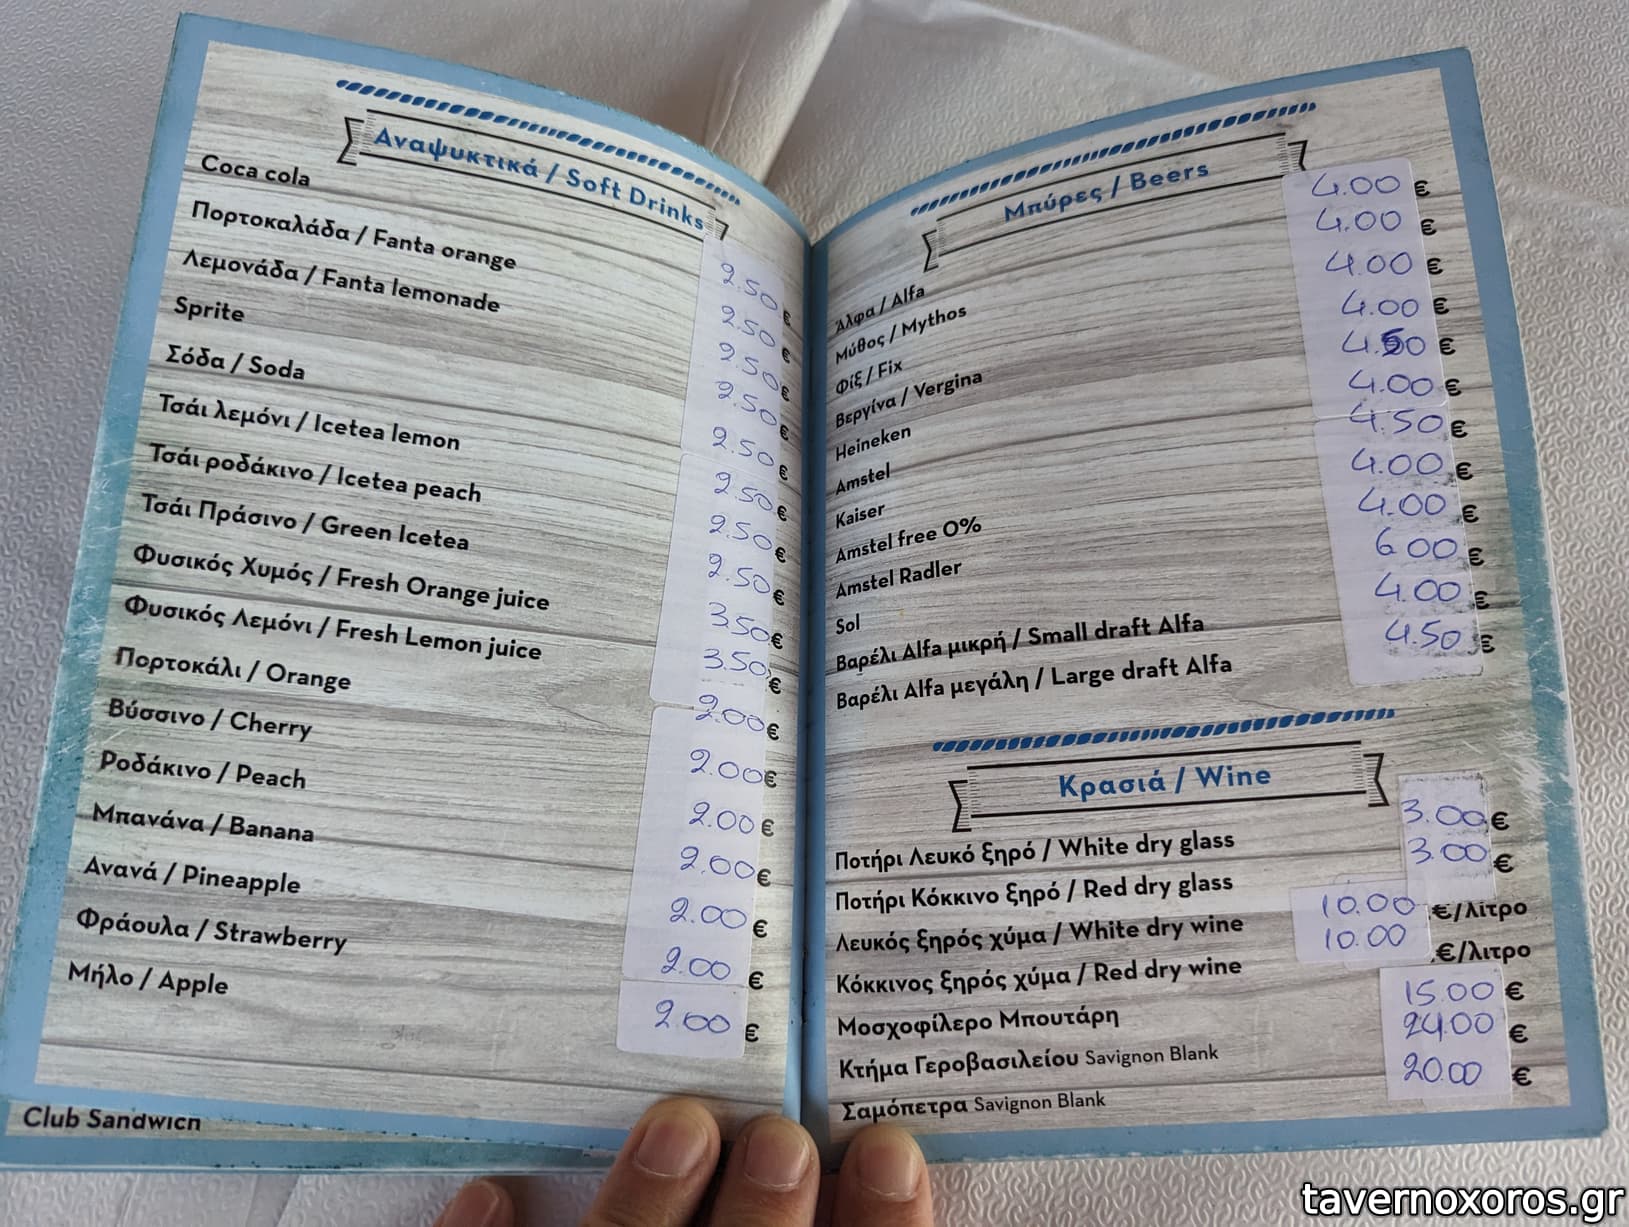 Αναψυκτικά / Soft Drinks
Coca cola 2.50 €
Πορτοκαλάδα / Fanta orange 2.50 €
Λεμονάδα / Fanta lemonade 2.50 €
Sprite 2.50 €
Σόδα / Soda 2.50 €
Τσάι λεμόνι / Icetea lemon 2.50 €
Τσάι ροδάκινο / Icetea peach 2.50 €
Τσάι Πράσινο / Green Icetea 2.50 €
Φυσικός Χυμός / Fresh Orange juice 3.50 €
Φυσικός Λεμόνι / Fresh Lemon juice 3.50 €
Πορτοκάλι / Orange 2.00 €
Βύσσινο / Cherry 2.00 €
Ροδάκινο / Peach 2.00 €
Μπανάνα / Banana 2.00 €
Ανανά / Pineapple 2.00 €
Φράουλα / Strawberry 2.00 €
Μήλο / Apple 2.00 €
Club Sandwich
Μπύρες / Beers
Άλφα / Alfa 4.00 €
Μύθος / Mythos 4.00 €
Φίξ / Fix 4.00 €
Βεργίνα / Vergina 4.00 €
Heineken 4.50 €
Amstel 4.00 €
Kaiser 4.50 €
Amstel free 0% 4.00 €
Amstel Radler 4.00 €
Sol 6.00 €
Βαρέλι Alfa μικρή / Small draft Alfa 4.00 €
Βαρέλι Alfa μεγάλη / Large draft Alfa 4.50 €
Κρασιά / Wine
Ποτήρι Λευκό ξηρό / White dry glass 3.00 €
Ποτήρι Κόκκινο ξηρό / Red dry glass 3.00 €
Λευκός ξηρός χύμα / White dry wine 10.00 €/λίτρο
Κόκκινος ξηρός χύμα / Red dry wine 10.00 €/λιτρο
Μοσχοφίλερο Μπουτάρη 15.00 €
Κτήμα Γεροβασιλείου Savignon Blank 24.00 €
Σαμόπετρα Savignon Blank 20.00 €
tavernoxoros.gr